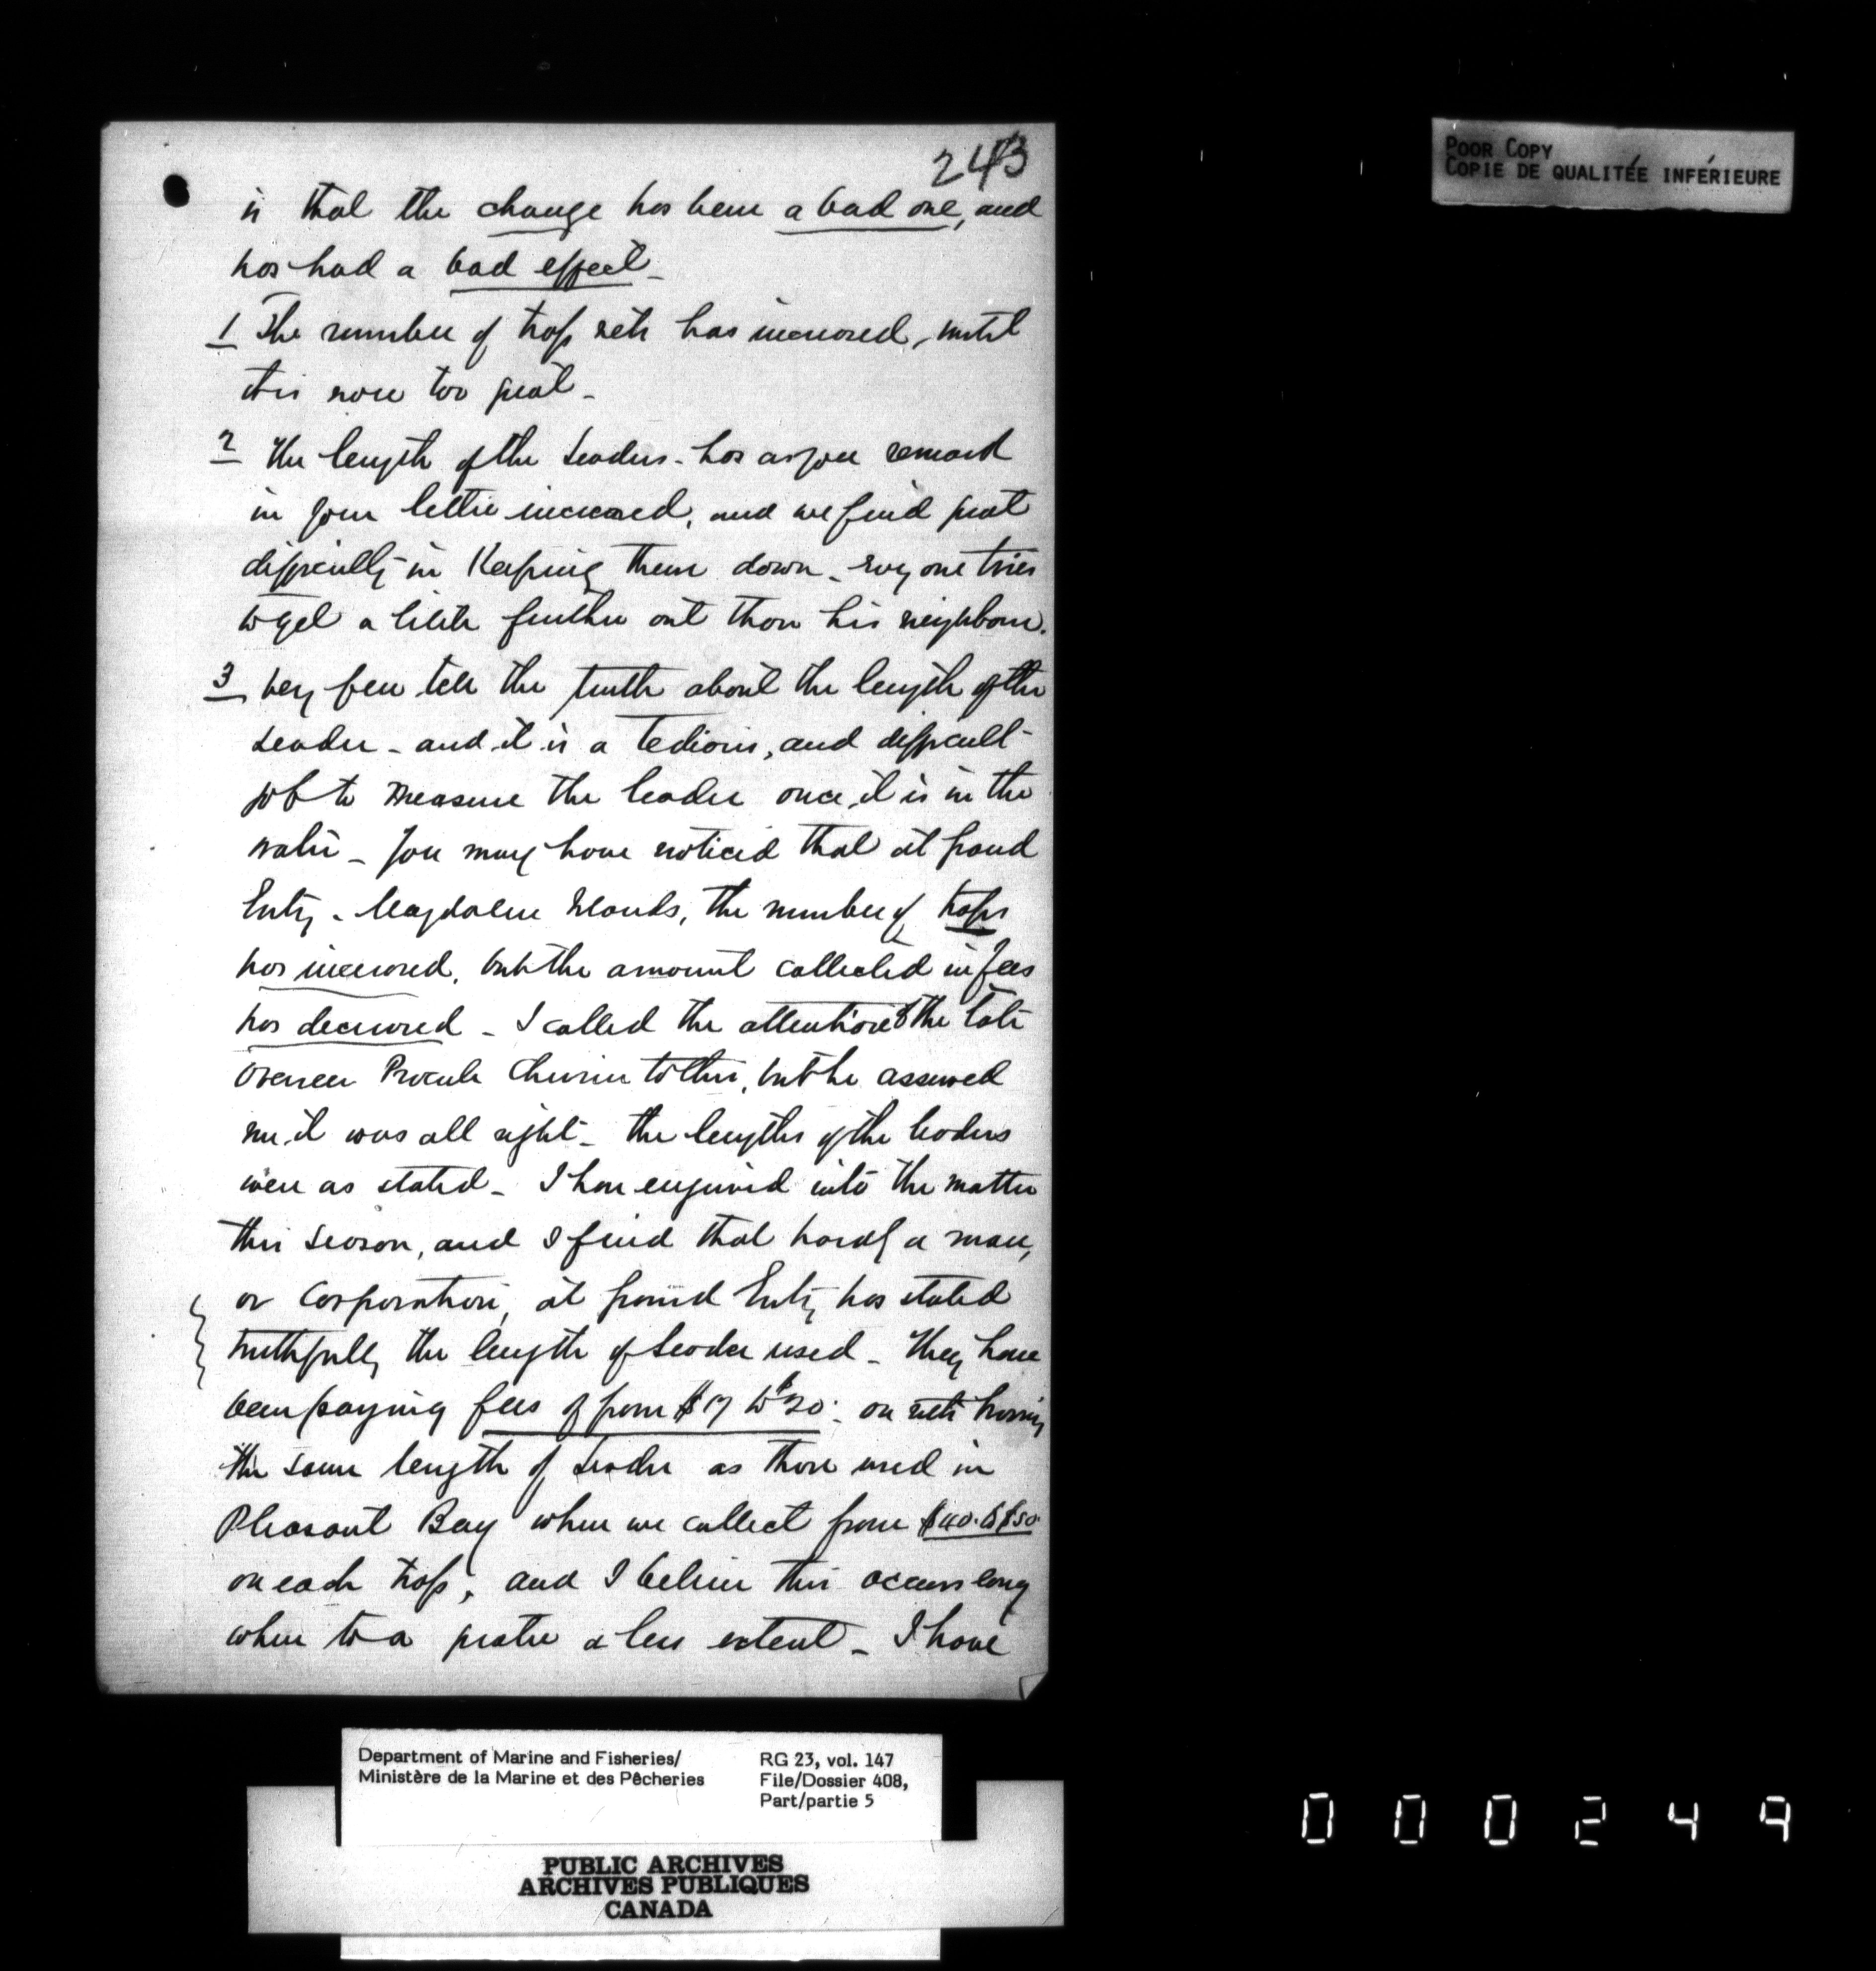 243
is that the change has been a bad one, and
has had a bad effect -
1 The number of trap nets has increased, until
it is now too great -
2 The length of the Leaders - has as you remark
in your letter increased, and we find great
difficulty in Keeping them down - Every one tries
to get a little further out than his neighbour.
3 Very few tell the truth about the length of the
Leader - and it is a Tedious, and difficult
job to measure the leader once it is in the
water - You may have noticed that at Grand
Entry - Magdalen Islands, the number of traps
has increased, but the amount collected in fees
has decreased - I called the attention of the late
Overseer Chevrier to this, but he assured
me it was all right - the lengths of the leaders
were as stated - I have enquired into the matter
this Season, and I find that hardly a man,
or Corporation, at Grand Entry has stated
truthfully the length of Leader used - They have
been paying fees of from $17 to $20. on nets having
the same length of Leader as those used in
Pleasant Bay where we collect from $40. to $50.
on each trap, and I believe this occurs every
where to a greater or less extent - I have
POOR COPY
COPIE DE QUALITÉE INFÉRIEURE
Department of Marine and Fisheries/
Ministère de la Marine et des Pêcheries
RG 23, vol. 147
File/Dossier 408,
Part/partie 5
PUBLIC ARCHIVES
ARCHIVES PUBLIQUES
CANADA
000249